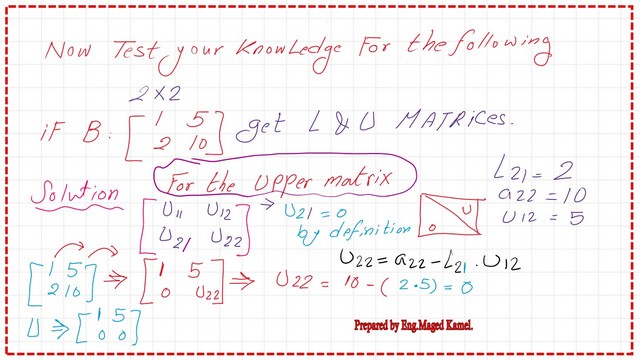 Now Test your Knowledge For the following
2 x 2
iF B: [1 5 2 10] get L & U MATRICES.
Solution
For the Upper matrix
L21 = 2
a22 = 10
U12 = 5
[U11 U12 U21 U22] → U21 = 0
by definition
U
0
U22 = a22 - L21 . U12
[1 5 2 10] ⇒ [1 5 0 U22] ⇒ U22 = 10 - (2.5) = 0
U ⇒ [1 5 0 0]
Prepared by Eng.Maged Kamel.